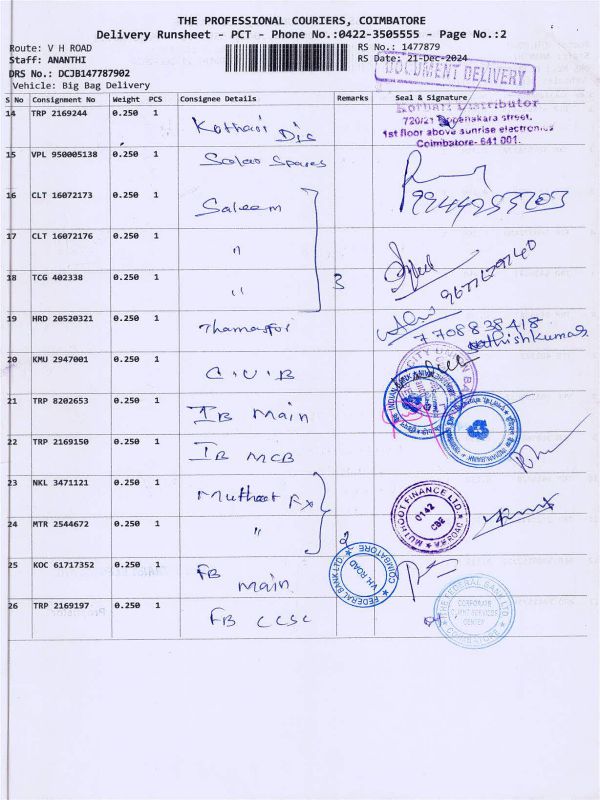 THE PROFESSIONAL COURIERS, COIMBATORE
Delivery Runsheet - PCT - Phone No.:0422-3505555 - Page No.:2
Route: V H ROAD
Staff: ANANTHI
DRS No.: DCJB147787902
Vehicle: Big Bag Delivery
RS No.: 1477879
RS Date: 21-Dec-2024
DOCUMENT DELIVERY
S No Consignment No Weight PCS Consignee Details Remarks Seal & Signature
14 TRP 2169244 0.250 1 Kothari Dis
Kothari Distributor
720/21 Oppanakara street,
1st floor above sunrise electronics
Coimbatore- 641 001.
15 VPL 950005138 0.250 1 Solar Spares
16 CLT 16072173 0.250 1 Saleem
17 CLT 16072176 0.250 1 "
18 TCG 402338 0.250 1 " 3
19 HRD 20520321 0.250 1
7708838418
sathishkumar
20 KMU 2947001 0.250 1 C.U.B
CITY UNION BA
21 TRP 8202653 0.250 1 IB Main
INDIAN BANK
22 TRP 2169150 0.250 1 IB MCB
INDIAN BANK
23 NKL 3471121 0.250 1 Muthoot Fx
MUTHOOT FINANCE LTD.
0142
CB2
24 MTR 2544672 0.250 1 " 2
25 KOC 61717352 0.250 1 FB Main
FEDERAL BANK LTD
V.H. ROAD
COIMBATORE
26 TRP 2169197 0.250 1 FB CCSC
THE FEDERAL BANK LTD
CORPORATE
CLIENT SERVICES
CENTER
COIMBATORE